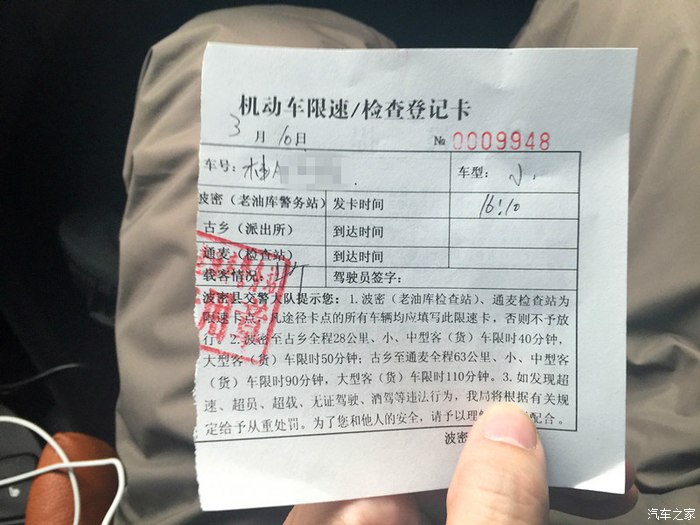 机动车限速/检查登记卡
3月10日 № 0009948
车号: 车型: 小
波密（老油库警务站） 发卡时间 16:10
古乡（派出所） 到达时间
通麦（检查站） 到达时间
载客情况: 驾驶员签字:
波密县交警大队提示您: 1.波密（老油库检查站）、通麦检查站为
限速卡点，凡途径卡点的所有车辆均应填写此限速卡，否则不予放
行。2.波密至古乡全程28公里、小、中型客（货）车限时40分钟，
大型客（货）车限时50分钟；古乡至通麦全程63公里、小、中型客
（货）车限时90分钟，大型客（货）车限时110分钟。3.如发现超
速、超员、超载、无证驾驶、酒驾等违法行为，我局将根据有关规
定给予从重处罚。为了您和他人的安全，请予以理 配合。
波密
汽车之家